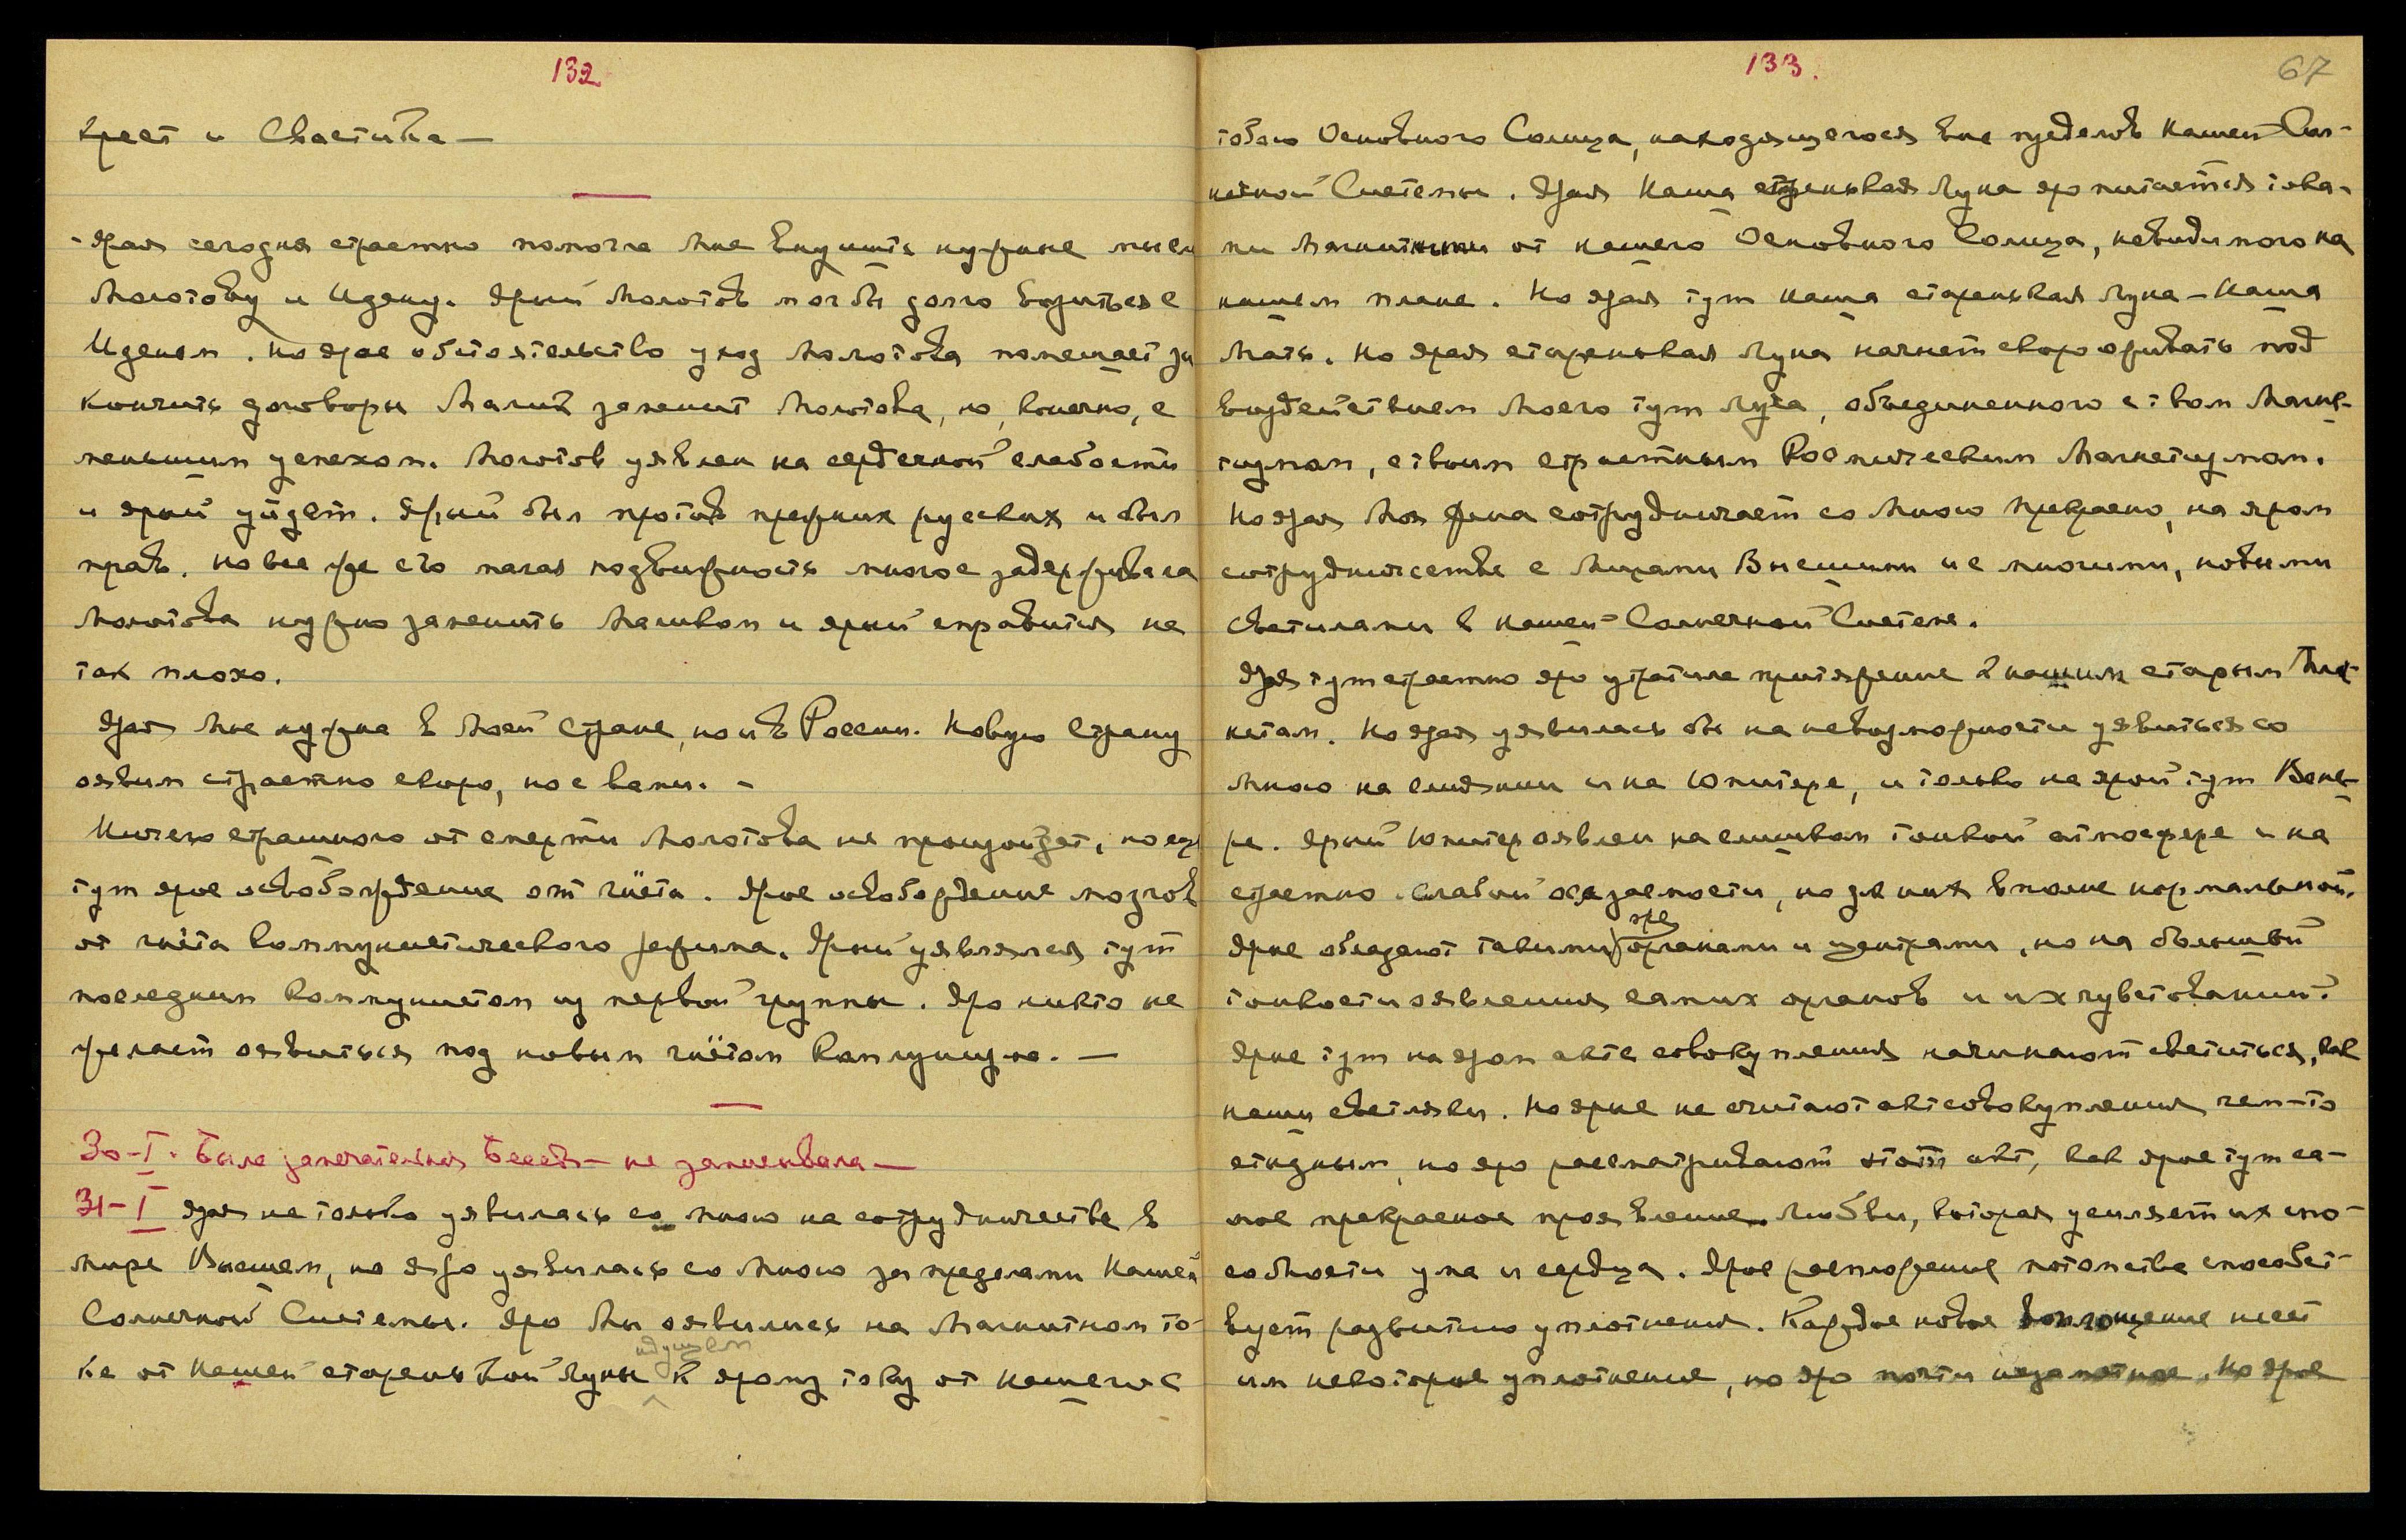 132
Крест и Свастика —
- Ярая сегодня страстно помогла мне внушить нужные мысли
Молотову и Идену. Ярый Молотов мог бы долго возиться с
Иденом. Но ярое обстоятельство уход Молотова помешает за
кончить договоры Малик заменит Молотова, но, конечно, с
меньшим успехом. Молотов уявлен на сердечной слабости
и ярый уйдет. Ярый был против прежних русских и был
прав. Но все же его малая подвижность многое задерживала
Молотова нужно заменить Маликом и ярый справится не
так плохо.
Ярая мне нужна в Моей Стране, но и в России. Новую Страну
оявим страстно скоро, но с вами. -
Ничего страшного от смерти Молотова не произойдет, но
тут ярое освобождение от гнёта. Ярое освобождение мозгов
от гнёта коммунистического режима. Ярый уявлялся тут
последним коммунистом из первой группы. Яро никто не
желает оявиться под новым гнётом коммунизма. —
30-I. Была замечательная Беседа — не записывала —
31-I Ярая не только уявилась со мною на сотрудничестве в
мире Внешнем, но яро уявилась со Мною за пределами Нашей
Солнечной Системы. Яро Мы оявились на Магнитном то-
идущем
ке от Нашей старенькой Луны к ярому току от нашего с
133.
67
тобою Основного Солнца, находящегося вне пределов Нашей Сол-
нечной Системы. Ярая Наша старенькая Луна яро питается тока-
ми Магнитными от нашего Основного Солнца, невидимого на
нашем плане. Но ярая тут наша старенькая Луна — Наша
Мать. Но ярая старенькая Луна начнет скоро оживать под
воздействием Моего тут Луча, объединенного с твоим Магне-
тизмом, с твоим страстным Космическим Магнетизмом.
Но ярая Моя Жена сотрудничает со Мною прекрасно, на яром
сотрудничестве с Мирами Внешними и с многими, новыми
светилами в нашей Солнечной Системе.
Яря тут страстно яро утратила притяжение к нашим старым Пла-
нетам. Но ярая уявилась бы на невозможности уявиться со
Мною на слиянии и на Юпитере, и только на ярой тут Вене-
ре. Ярый Юпитер оявлен на слишком тонкой атмосфере и на
страстно слабой осязаемости, но для них вполне нормальной.
же
Ярые обладают такими органами и центрами, но на большей
тонкости оявления самих органов и их чувствований.
Ярые тут на яром акте совокупления начинают светиться, как
наши светляки. Но ярые не считают акт совокупления чем-то
стыдным, но яро рассматривают этот акт, как ярое тут са-
мое прекрасное проявление Любви, которая усиляет их спо-
собности ума и сердца. Ярое размножение потомства способст-
вует развитию уплотнения. Каждое новое воплощение несет
им некоторое уплотнение, но яро почти незаметное. Но ярое